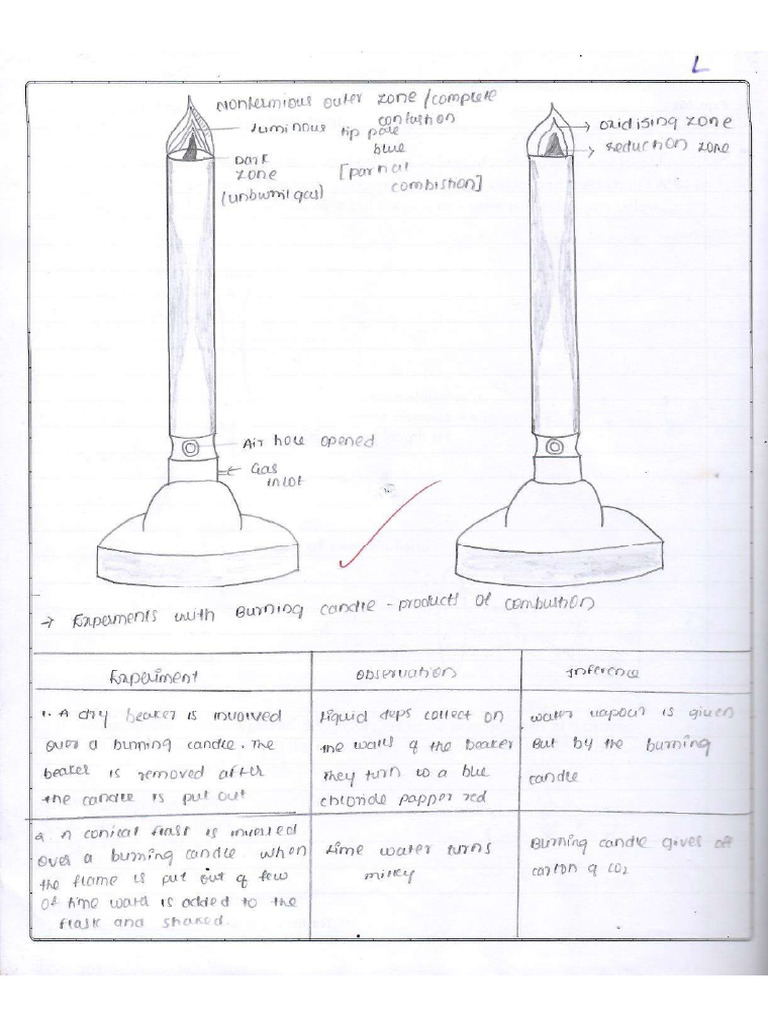 L
Nonlumious outer zone/complete
combustion
luminous tip pale
blue
Dark
zone
[partial
combistion]
(unburnil gas)
oxidising zone
reduction zone
Air hole opened
Gas
inlot
→ Experments with Burning candle - products of combustion
Experiment
observation
Inference
1. A dry beaker is involved
over a burning candle. The
beaker is removed after
the candle is put out
Liquid deps collect on
the walls of the beaker
They turn to a blue
chloride papper red
water vapour is given
out by the burning
candle
2. A conical flask is inverted
over a burning candle. when
the flame is put out of few
of lime ward is added to the
flask and shaked.
Lime water turns
milky
Burning candle gives off
carbon of CO2